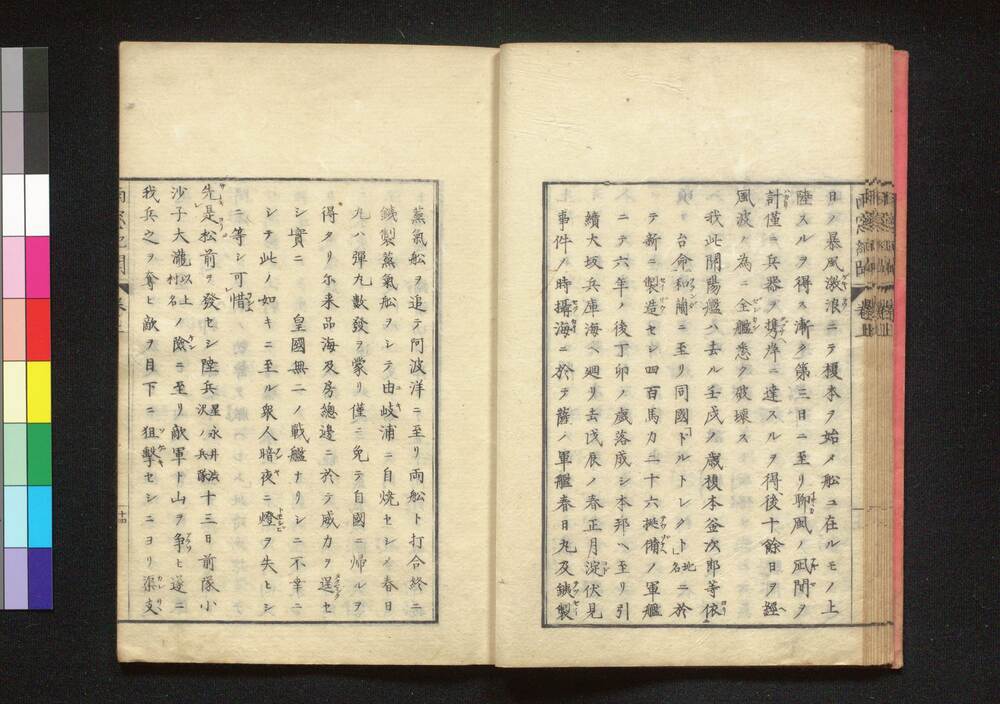 日ノ暴風激浪ニテ榎本ヲ始メ舩ユ在ルモノ上
陸スルヲ得ス漸ク第三日ニ至リ聊風ノ凪間ヲ
計僅ニ兵器ヲ携岸ニ達スルヲ得後十餘日ヲ經
風波ノ為ニ全艦悉ク破壊ス
我此開陽艦ハ去ル壬戌ノ歳榎本釜次郎等依
台命和蘭ニ至リ同國「ドルトレクト」地名ニ於
テ新ニ製造セシ四百馬力二十六挺備ノ軍艦
ニテ六年ノ後丁卯ノ歳落成シ本邦ヘ至リ引
續大坂兵庫海ヘ廻リ去戊辰ノ春正月淀伏見
事件ノ時攝海ニ於テ薩ノ軍艦春日丸及鐵製
蒸氣舩ヲ追テ阿波洋ニ至リ両舩ト打合終ニ
鐵製蒸氣舩ヲシテ由岐浦ニ自焼セシメ春日
丸ハ彈丸數發ヲ蒙リ僅ニ免テ自國ニ帰ルヲ
得タリ尓来品海及房總邊ニ於テ威力ヲ逞セ
シ實ニ 皇國無二ノ戦艦ナリシニ不幸ニ
シテ此ノ如キニ至ル衆人暗夜ニ燈ヲ失ヒシ
等シ可惜
先是松前ヲ發セシ陸兵星永井沢ノ兵隊十三日前隊小
沙子大瀧以上村名ノ險ニ至リ敵軍ト山ヲ争ヒ遂ニ
我兵之ヲ奪ヒ敵ヲ目下ニ狙撃セシニヨリ渠支
十四